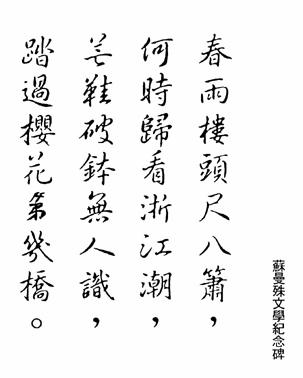 春雨樓頭尺八簫，
何時歸看浙江潮，
芒鞋破鉢無人識，
踏過櫻花第幾橋。
蘇曼殊文學紀念碑